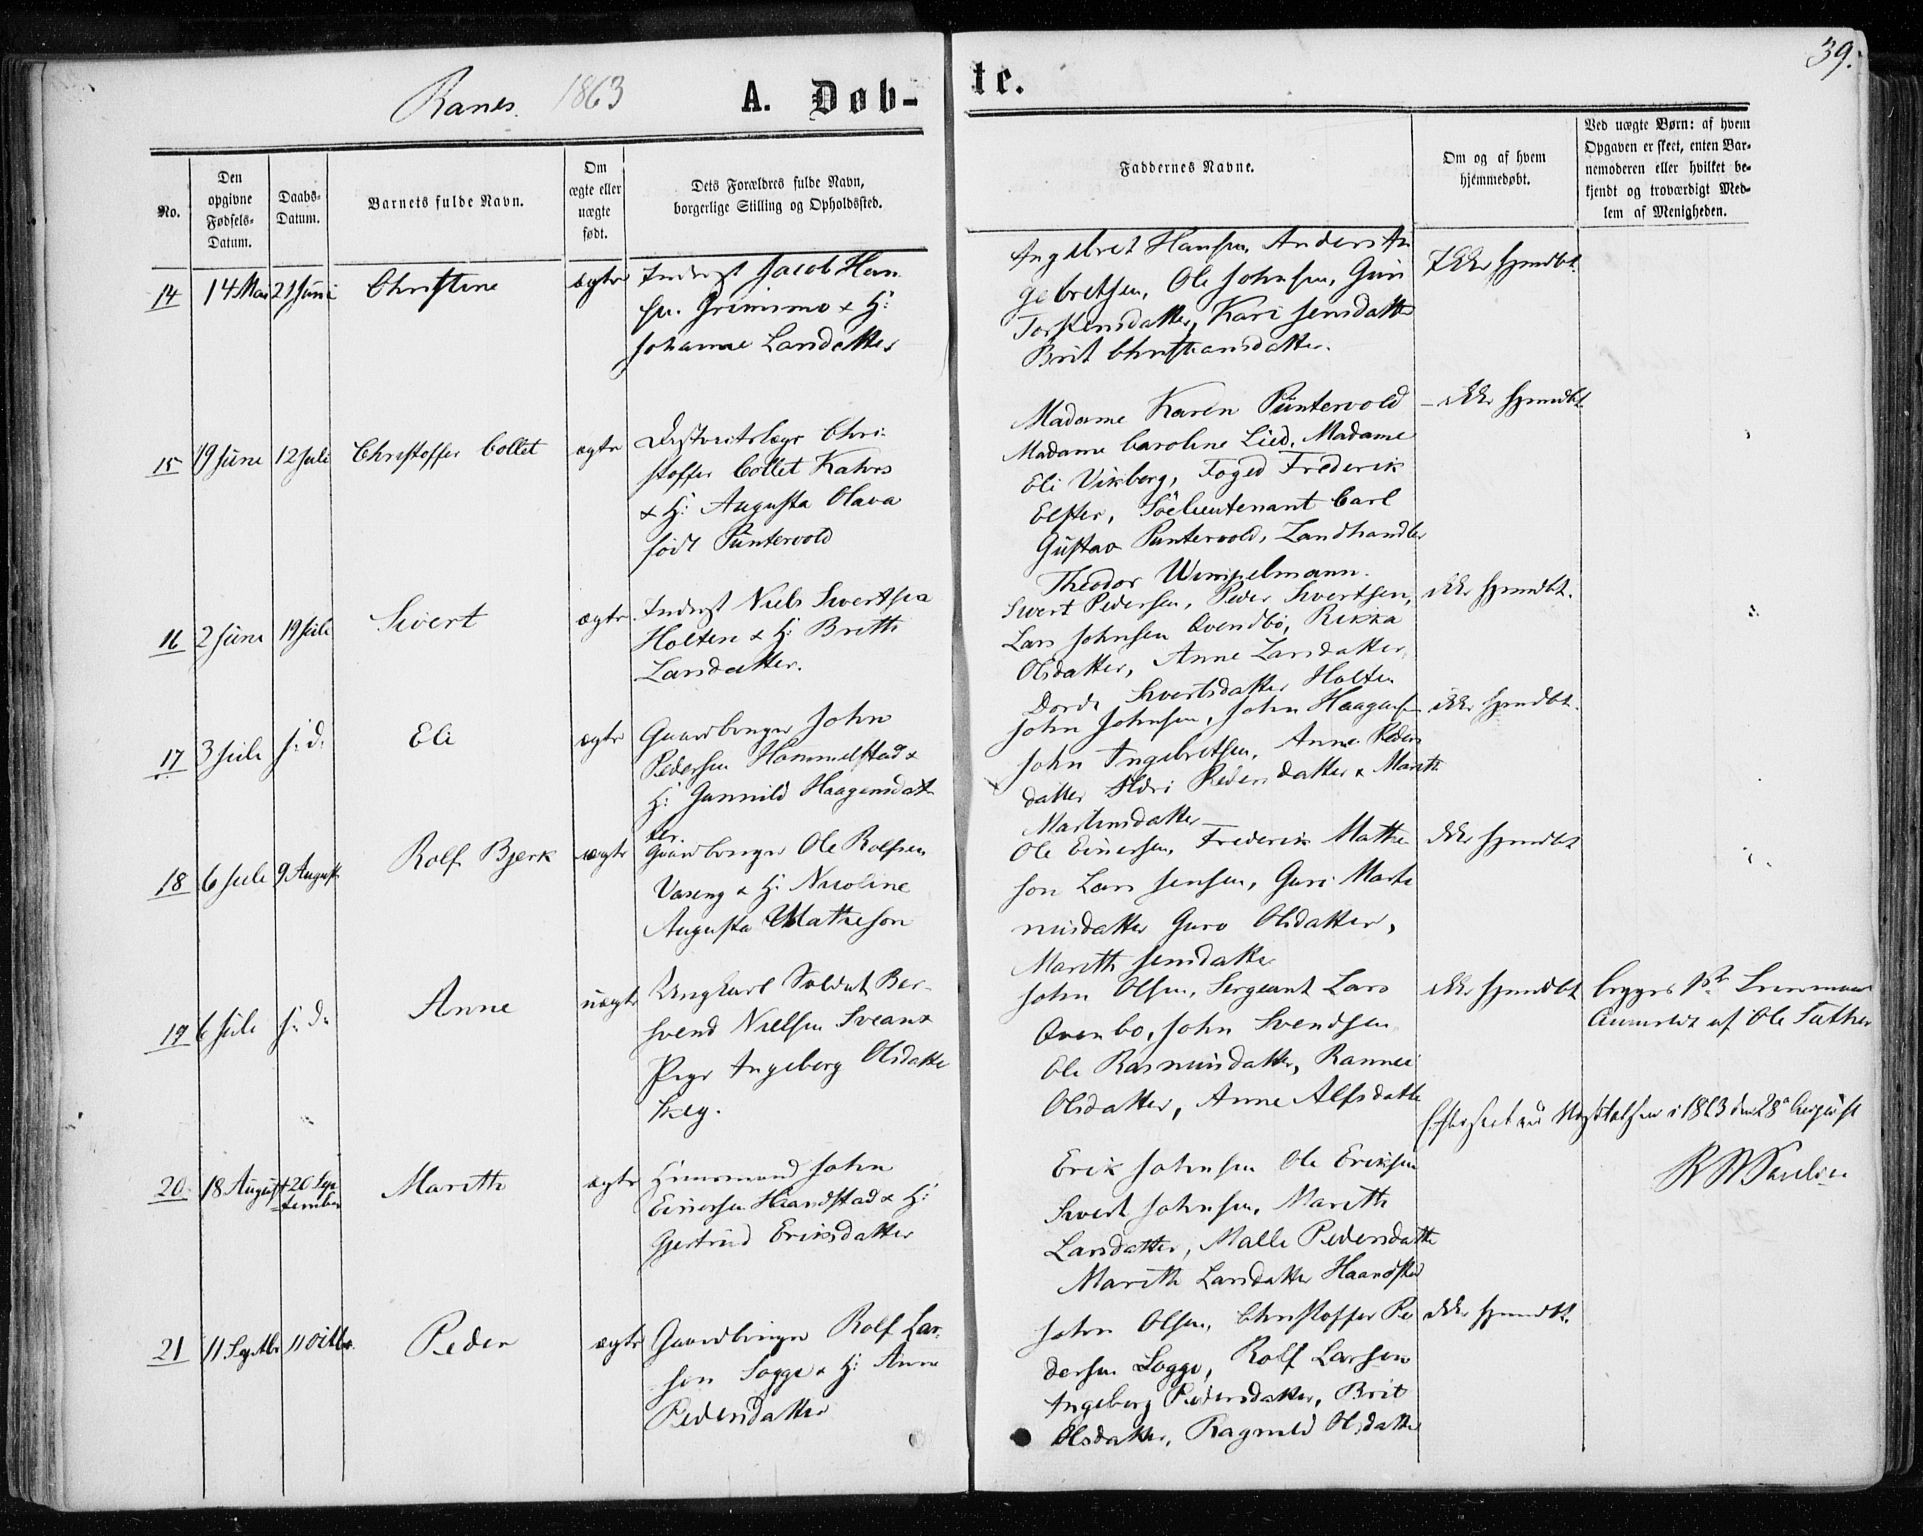 39.
Ranes. 1863 A. Døb-te.
No.
Den opgivne Fødsels-Datum.
Daabs-Datum.
Barnets fulde Navn.
Om ægte eller uægte født.
Dets Forældres fulde Navn, borgerlige Stilling og Opholdssted.
Faddernes Navne.
Om og af hvem hjemmedøbt.
Ved uægte Børn: af hvem
Opgaven er skeet, enten Bar-
nemoderen eller hvilket be-
kjendt og troværdigt Med-
lem af Menigheden.
14 14 Mai 21 Juni Christine ægte Inderst Jacob Han
sen Grimsmo & H:
Johanne Larsdatter
Ingebret Hansen, Anders In
gebretsen, Ole Johnsen, Guri
Torstensdatter, Kari Jensdatter
Brit Christiansdatter.
Ikke hjmdbt.
15 19 June 12 Juli Christoffer Collet ægte Distriktslæge Chri
stoffer Collet Kahrs
& H: Augusta Olava
født Püntervold
Madame Karen Püntervold
Madame Caroline Lied, Madame
Eli Vikberg, Foged Frederik
Elster, Söelieutenant Carl
Gustav Puntervold, Landhandler
Theodor Wimpelmann.
ikke hjmdbt.
16 2 June 19 Juli Sivert ægte Inderst Niels Sivertsen
Holten & H: Brith
Larsdatter.
Sivert Pedersen, Peder Sivertsen,
Lars Johnsen Qvendbø, Rikka
Olsdatter, Anne Larsdatter,
Dordi Sivertsdatter Holten
ikke hjmdbt.
17 3 Juli s: d: Eli ægte Gaardbruger John
Pedersen Hammelstad &
H: Gunnild Haagensdat
ter.
John Johnsen, John Haagens
John Ingebretsen, Anne Peders
datter Pedersdatter & Marith
Martinsdatter
ikke hjmdbt.
18 6 Juli 9 August Rolf Bjerk ægte Gaardbruger Ole Rolfsen
Vaseng & H: Nicoline
Augusta Matheson
Ole Einersen, Frederik Mathe
son Lars Jensen, Guri Marti
nusdatter Guro Olsdatter,
Marith Jensdatter
ikke hjmdbt
19 6 Juli s: d: Anne uægte Ungkarl Soldat Ber
svend Nielsen Svean &
Pige Ingeborg Olsdatter
Skey.
John Olsen, Sergeant Lars
Qvenbo, John Svendsen
Ole Rasmusdatter, Rannei
Olsdatter, Anne Alfsdatter
ikke hjmdbt
af Ole Sæther
i 1863 den 28de August
20. 18 August 20 Sep
tember Marith ægte Huusmand John
Einersen Haandstad & H:
Gjertrud Eriksdatter
Erik Johnsen Ole Eriksen
Sivert Johnsen, Marith
Larsdatter, Malle Pedersdatter
Marith Larsdatter Haandstad
21 11 Septbr 11 Octbr. Peder ægte Gaardbruger Rolf Lar
sen Sogge & H: Anne
Pedersdatter
John Olsen, Christoffer Pe
dersen Sogge, Rolf Larsen
Ingeborg Pedersdatter, Brit
Olsdatter, Ragnild Olsdatter
ikke hjmdbt.